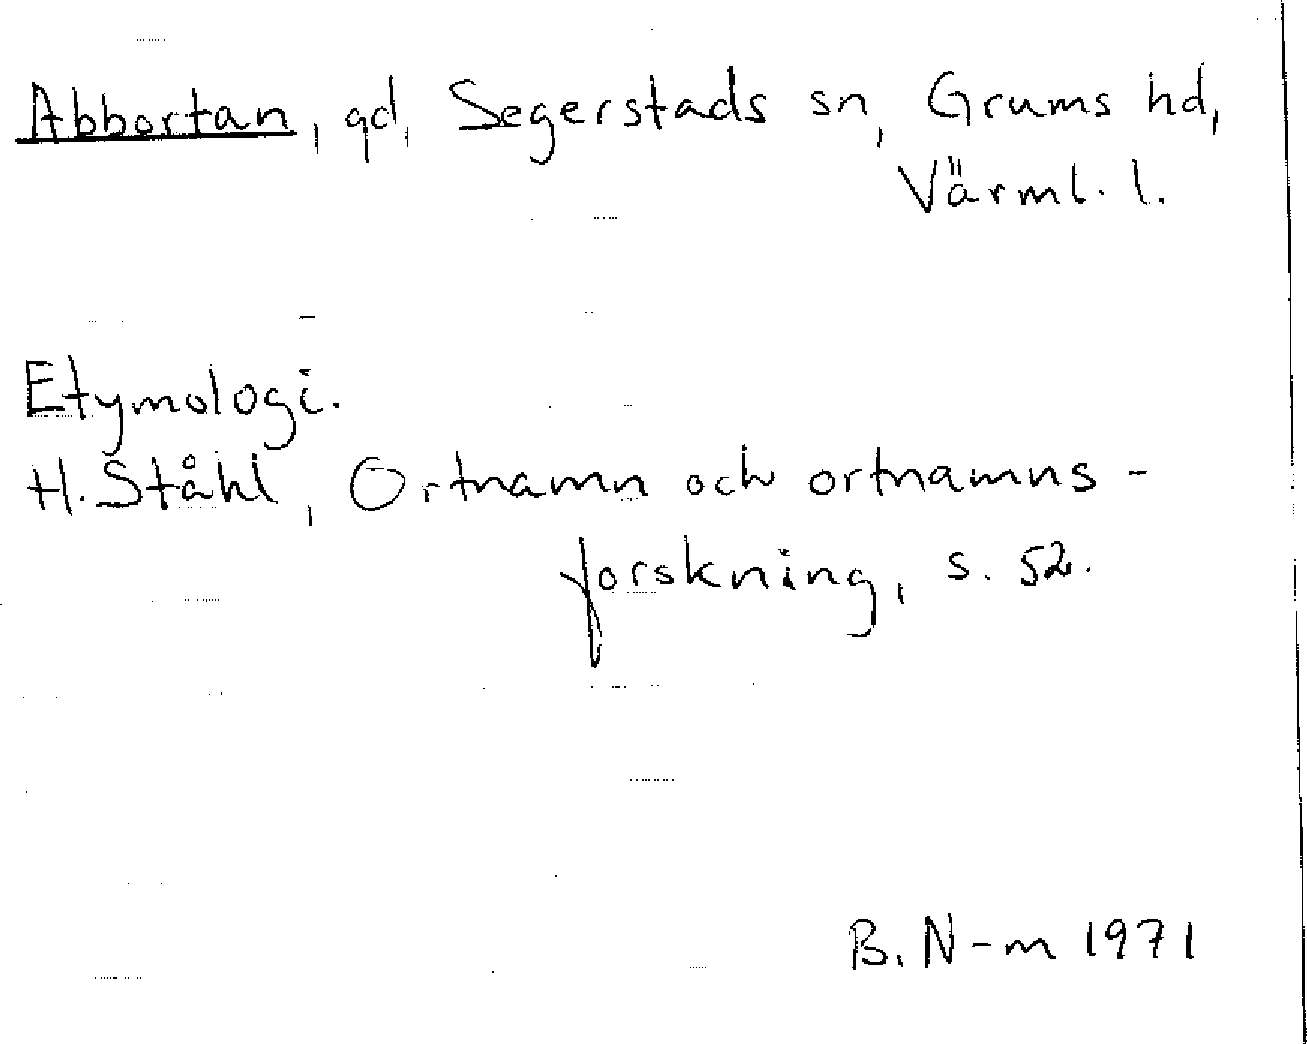 Abbortan, gd, Segerstads sn, Grums hd,
Värml. l.
Etymologi.
H. Ståhl, Ortnamn och ortnamns-
forskning, s. 52.
B. N-m 1971